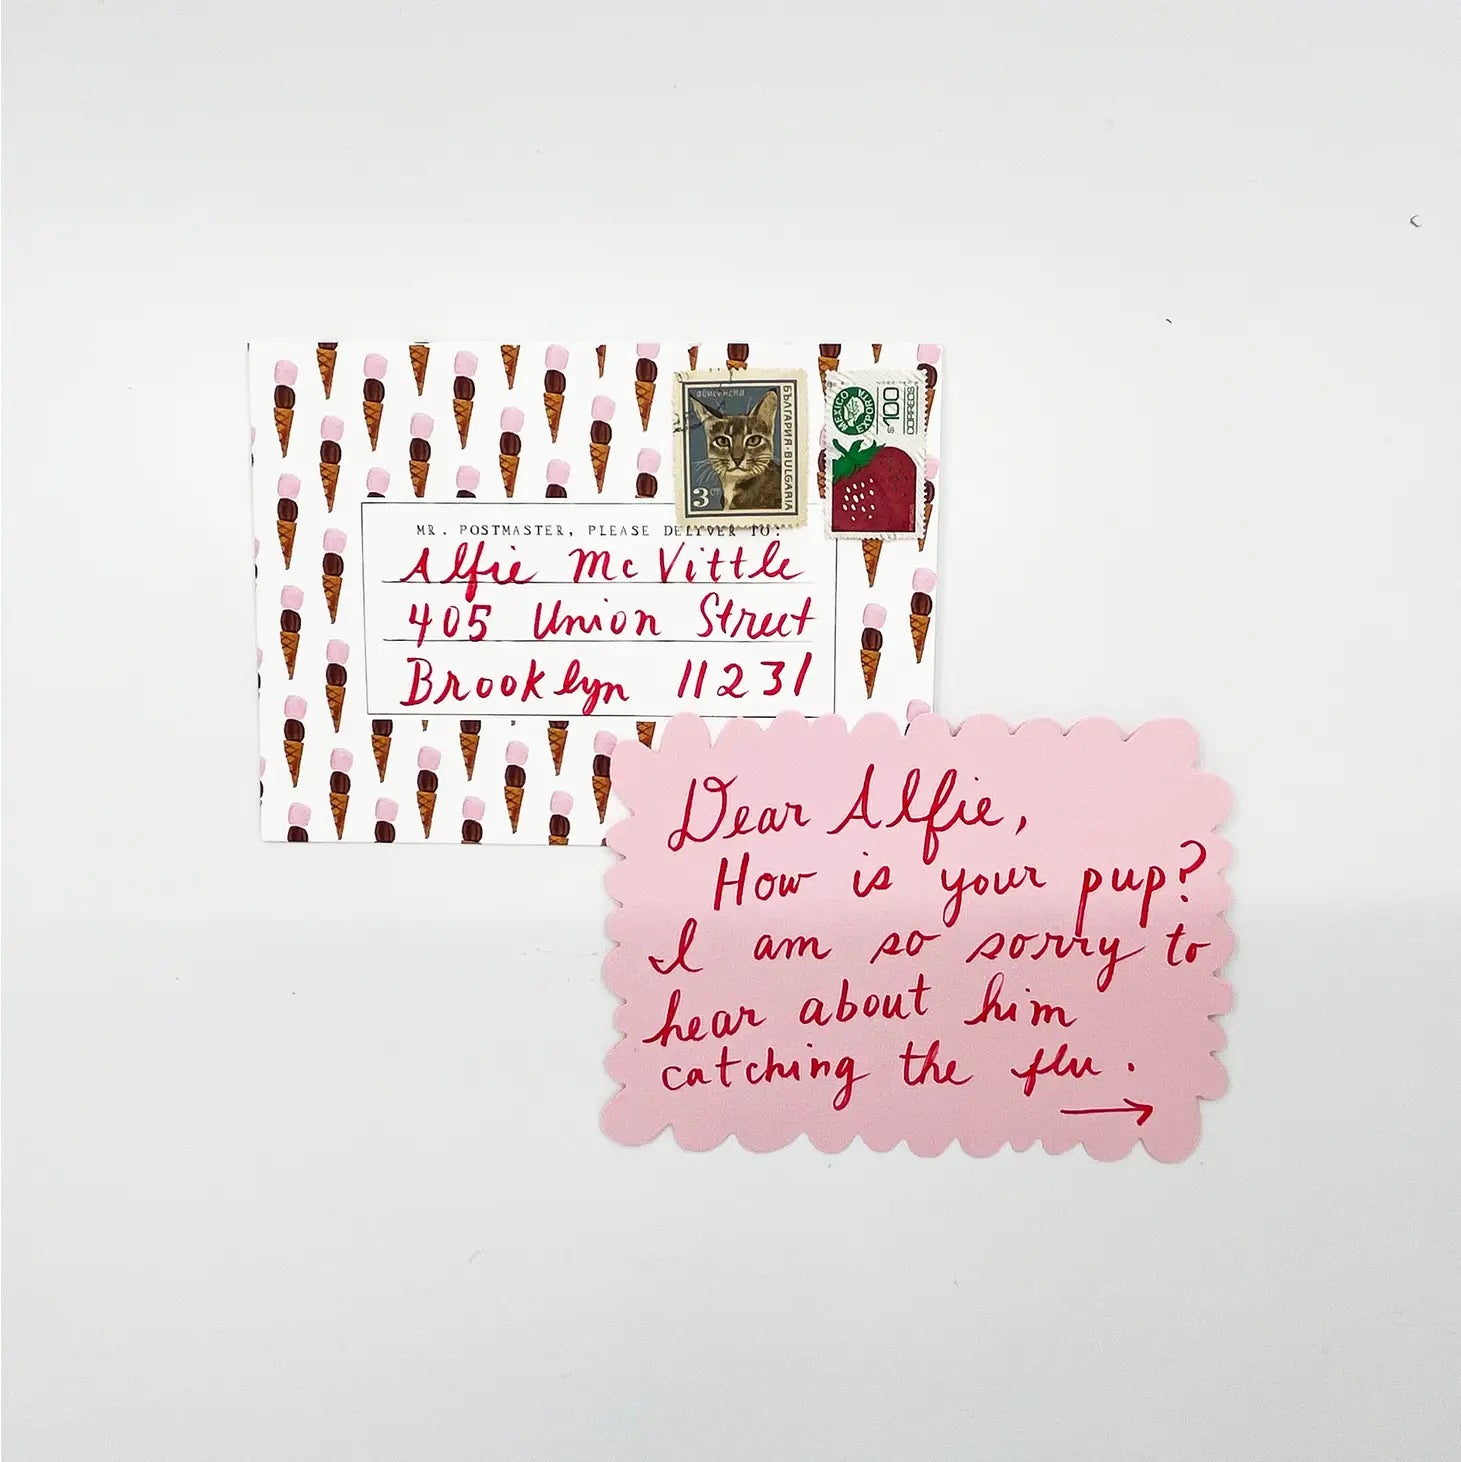 MR. POSTMASTER, PLEASE DELIVER TO:
Alfie McVittle
405 Union Street
Brooklyn 11231
БЪЛГАРИЯ·BULGARIA
3
MEXICO
EXPORTA
$100
CORREOS
Dear Alfie,
How is your pup?
I am so sorry to
hear about him
catching the flu.
→